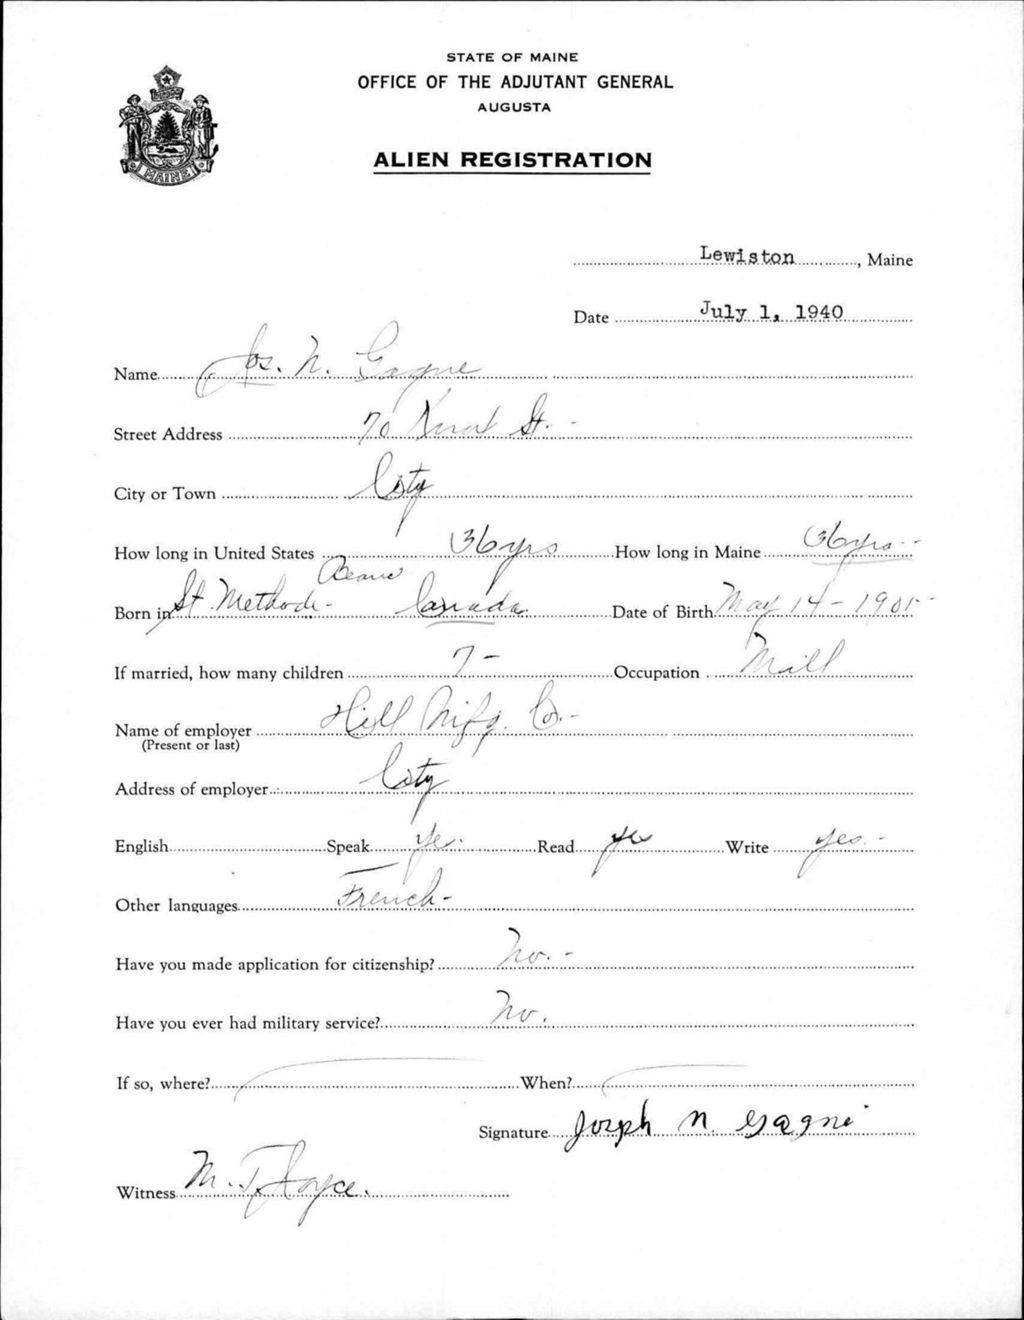 STATE OF MAINE
OFFICE OF THE ADJUTANT GENERAL
AUGUSTA
MAINE
ALIEN REGISTRATION
Lewiston, Maine
Date July 1, 1940
Name Jos. N. Gagne
Street Address 70 St. -
City or Town City
How long in United States 36 yrs How long in Maine 36 yrs -
Beauce
Born in St. Methode - Canada. Date of Birth May 14 - 1901 -
If married, how many children 7 - Occupation Mill
Name of employer Hill Mifg. Co. -
(Present or last)
Address of employer City
English Speak Yes. Read yes Write yes. -
Other languages French -
Have you made application for citizenship? No. -
Have you ever had military service? No.
If so, where? When?
Signature Joseph N. Gagné
Witness M. T. Joyce.